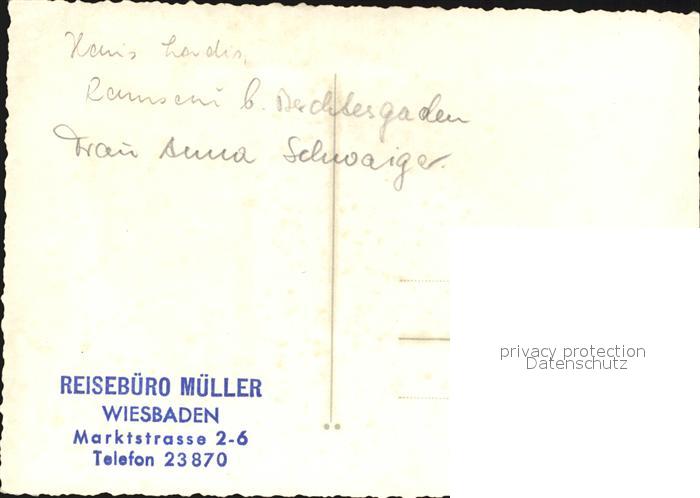 Haus
Ramsau b. Berchtesgaden
Frau Anna Schwaiger.
privacy protection
Datenschutz
REISEBÜRO MÜLLER
WIESBADEN
Marktstrasse 2-6
Telefon 23870